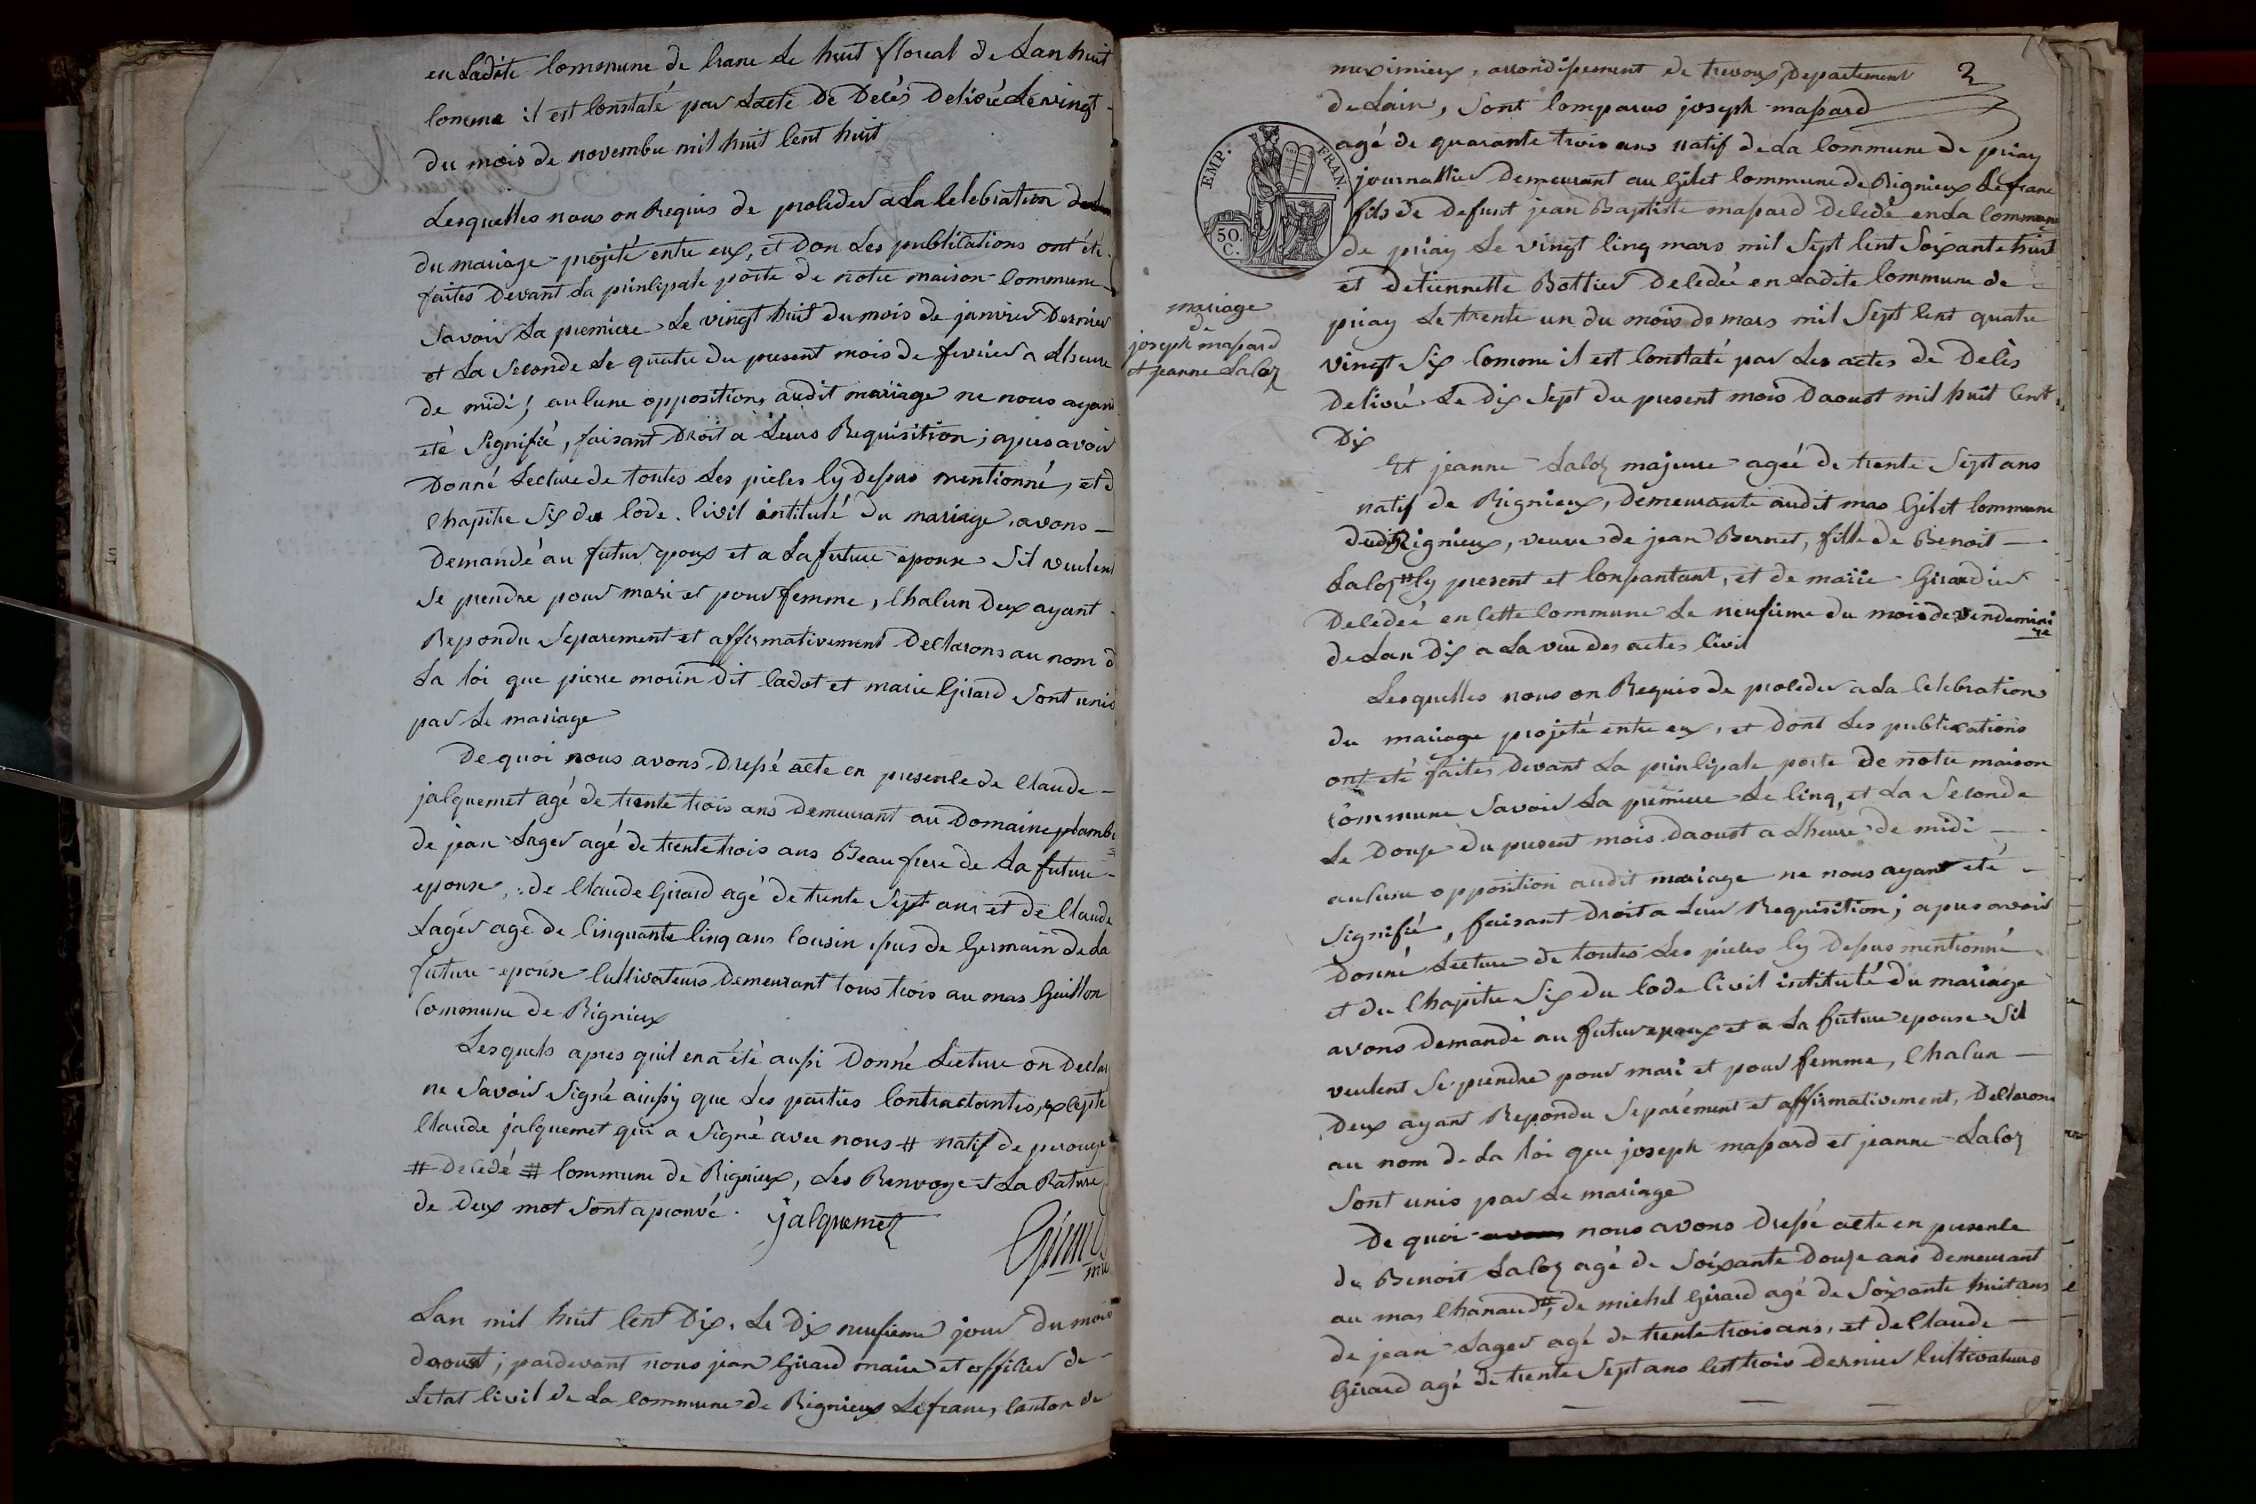 en Ladite Commune de Crane Le huit floreal de Lan huit
Comme il est Constaté par Lacte De Décés Delivré Le vingt
du mois de novembre mil huit Cent huit
Lesquelles nous on Requis de proceder a La Celebration
du mariage projété entre eux, et Don Les publications ont été
faites Devant La principale porte de notre maison Commune
Savoir La premiere Le vingt huit du mois de janvier Dernier
et La Seconde Le quatre du present mois de fevrier a Lheure
de midi ; aucune opposition audit mariage ne nous ayant
eté Signifié, faisant Droit a Leurs Requisition ; apres avoir
Donné Lecture de toutes Les pieces Cy Dessus mentionné, et d
Chapitre Six du Code Civil intitulé Du mariage avons
Demandé au futur epoux et a La future epouse Sil veulent
Se prendre pour mari et pour femme, Chacun Deux ayant
Repondu Separement et affirmativement Declarons au nom d
La loi que pierre morin Dit Cadot et marie Girard Sont unis
par Le mariage
De quoi nous avons Dressé acte en presence de Claude
jacquemet agé de trente trois ans Demeurant au Domaine plamb
de jean Lager agé de trente trois ans Beau frere de La future
epouse, de Claude Girard agé de trente Sept ans et de Claude
Lager agé de Cinquante Cinq ans Cousin issus de Germain de La
future epouse Cultivateurs Demeurant tous trois au mas Guillon
Commune de Rignieux
Lesquels apres quil en a été aussi Donné Lecture on Declar
ne Savoir Signé ainssy que Les parties Contractantes, excepté
Claude jacquemet qui a Signé avec nous # natif de perouge
# Decedé # Commune de Rignieux, Les Renvoye et La Rature
de Deux mot Sont aprouvé. jacquemet
Lan mil huit Cent Dix, Le Dix neufieme jour Du mois
daoust ; pardevant nous jean Girard maire et officier de
Letat Civil de La Commune de Rignieux Lefranc, Canton de
2
meximieux, arrondissement de trevoux, Departement
de Lain, Sont Comparus joseph massard
agé de quarante trois ans natif de La Commune de priay
journallier Demeurant au Gilet Commune de Rignieux Lefranc
fils de Defunt jean Baptiste massard Decedé en La Commune
de priay Le vingt Cinq mars mil Sept Cent Soixante huit
et detiennette Bottier Decedée en Ladite Commune de
priay Le trente un du mois de mars mil Sept Cent quatre
vingt Six Comme il est Constaté par Les actes de Décès
Delivré Le Dix Sept du present mois Daoust mil huit Cent
Dix
EMP. FRAN.
50. C.
mariage
de
joseph massard
et jeanne Laloz
Et jeanne Laloz majeure ageé de trente Sept ans
natif de Rignieux, demeurante audit mas Gilet Commune
dudit Rignieux, veuve de jean Bernet, fille de Benoit
Laloz # Cy present et Consantant, et de marie Girardier
Decedée en Cette Commune Le neufieme du mois de vendemiai
re
de Lan Dix a La vue des actes Civil
Lesquelles nous on Requis de proceder a La Celebration
du mariage projeté entre eux, et dont Les publications
ont eté faites Devant La principale porte De notre maison
Commune Savoir La premiere Le Cinq, et La Seconde
Le Douze du present mois Daoust a Lheure de midi
aucune opposition audit mariage ne nous ayant eté
Signifié, faisant Droit a Leur Requisition ; apres avoir
Donné Lecture de toutes Les pieces Cy Dessus mentionné
et du Chapitre Six Du Code Civil intitulé Du mariage
avons Demandé au futur epoux et a La future epouse Sil
veulent Se prendre pour mari et pour femme, Chacun
Deux ayant Repondu Separément et affirmativement, Declarons
au nom de La loi que joseph massard et jeanne Laloz
Sont unis par Le mariage
De quoi nous avons Dressé acte en presence
de Benoit Laloz agé de Soixante Douze ans demeurant
au mas Chanaud #, de michel Girard agé de Soixante huit ans
de jean Lager agé de trente trois ans, et de Claude
Girard agé de trente Sept ans Cest trois Dernier Cultivateurs